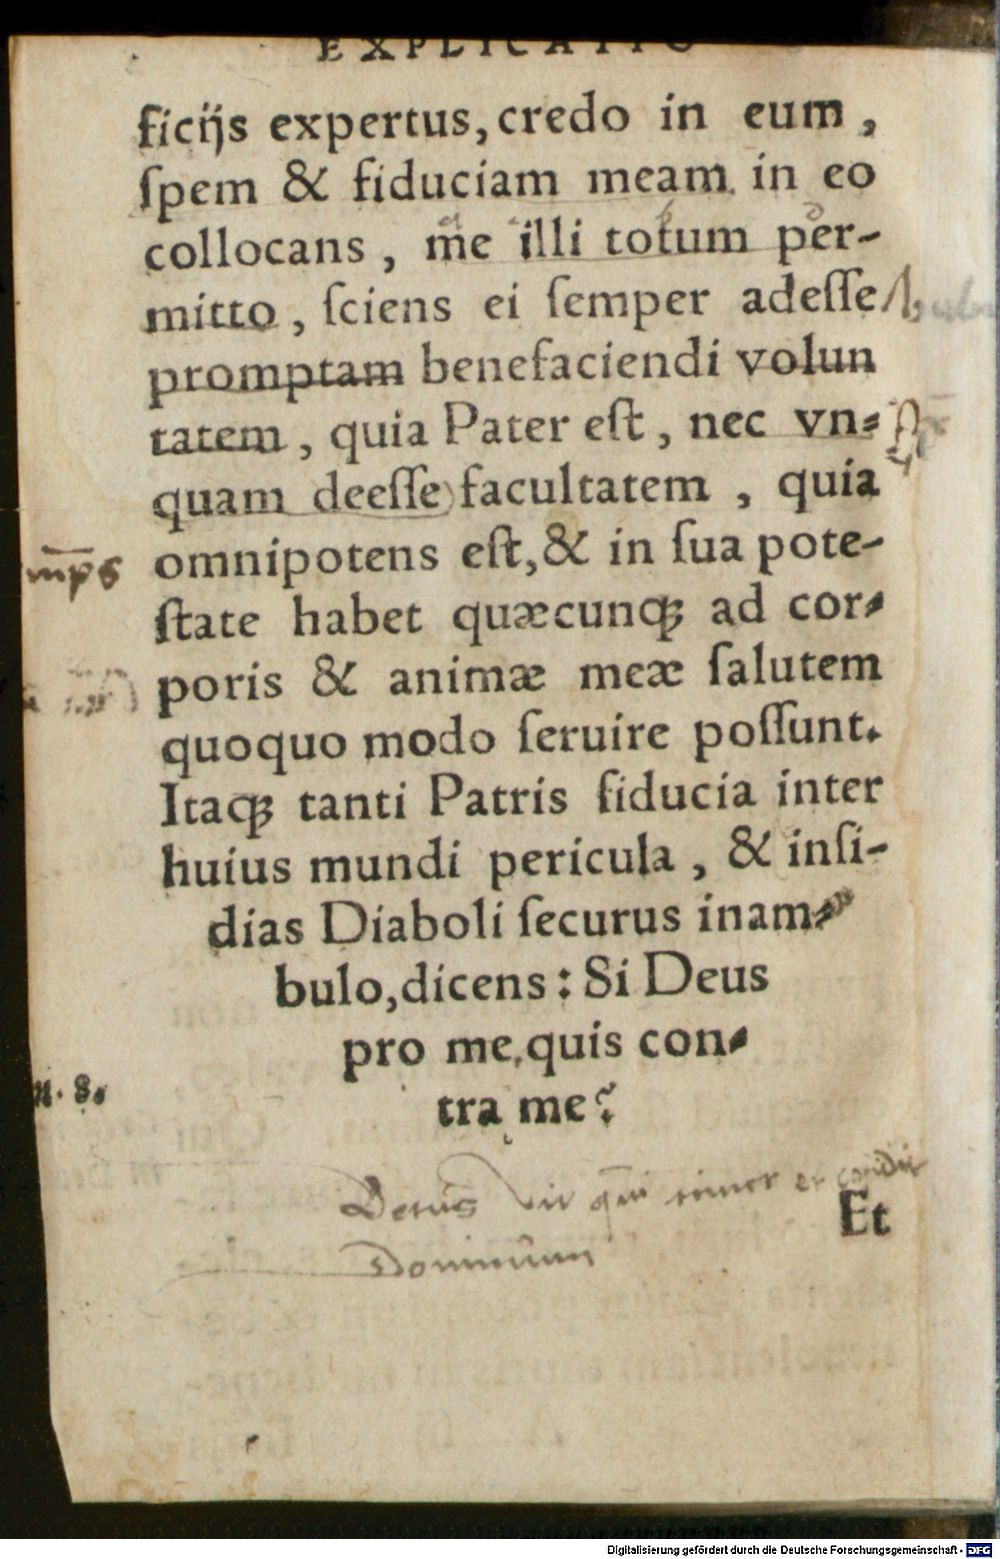 EXPLICATIO
ficijs expertus, credo in eum,
ſpem & fiduciam meam in eo
collocans, me illi totum per-
mitto, ſciens ei ſemper adeſſe
promptam benefaciendi volun
tatem, quia Pater eſt, nec vn-
quam deeſſe facultatem, quia
omnipotens eſt, & in ſua pote-
ſtate habet quæcunq; ad cor-
poris & animæ meæ ſalutem
quoquo modo ſeruire poſſunt.
Itaq; tanti Patris fiducia inter
huius mundi pericula, & inſi-
dias Diaboli ſecurus inam-
bulo, dicens: Si Deus
pro me, quis con-
tra me?
. 8.
vir qui timet et
Dominum
Et
Digitalisierung gefördert durch die Deutsche Forschungsgemeinschaft - DFG